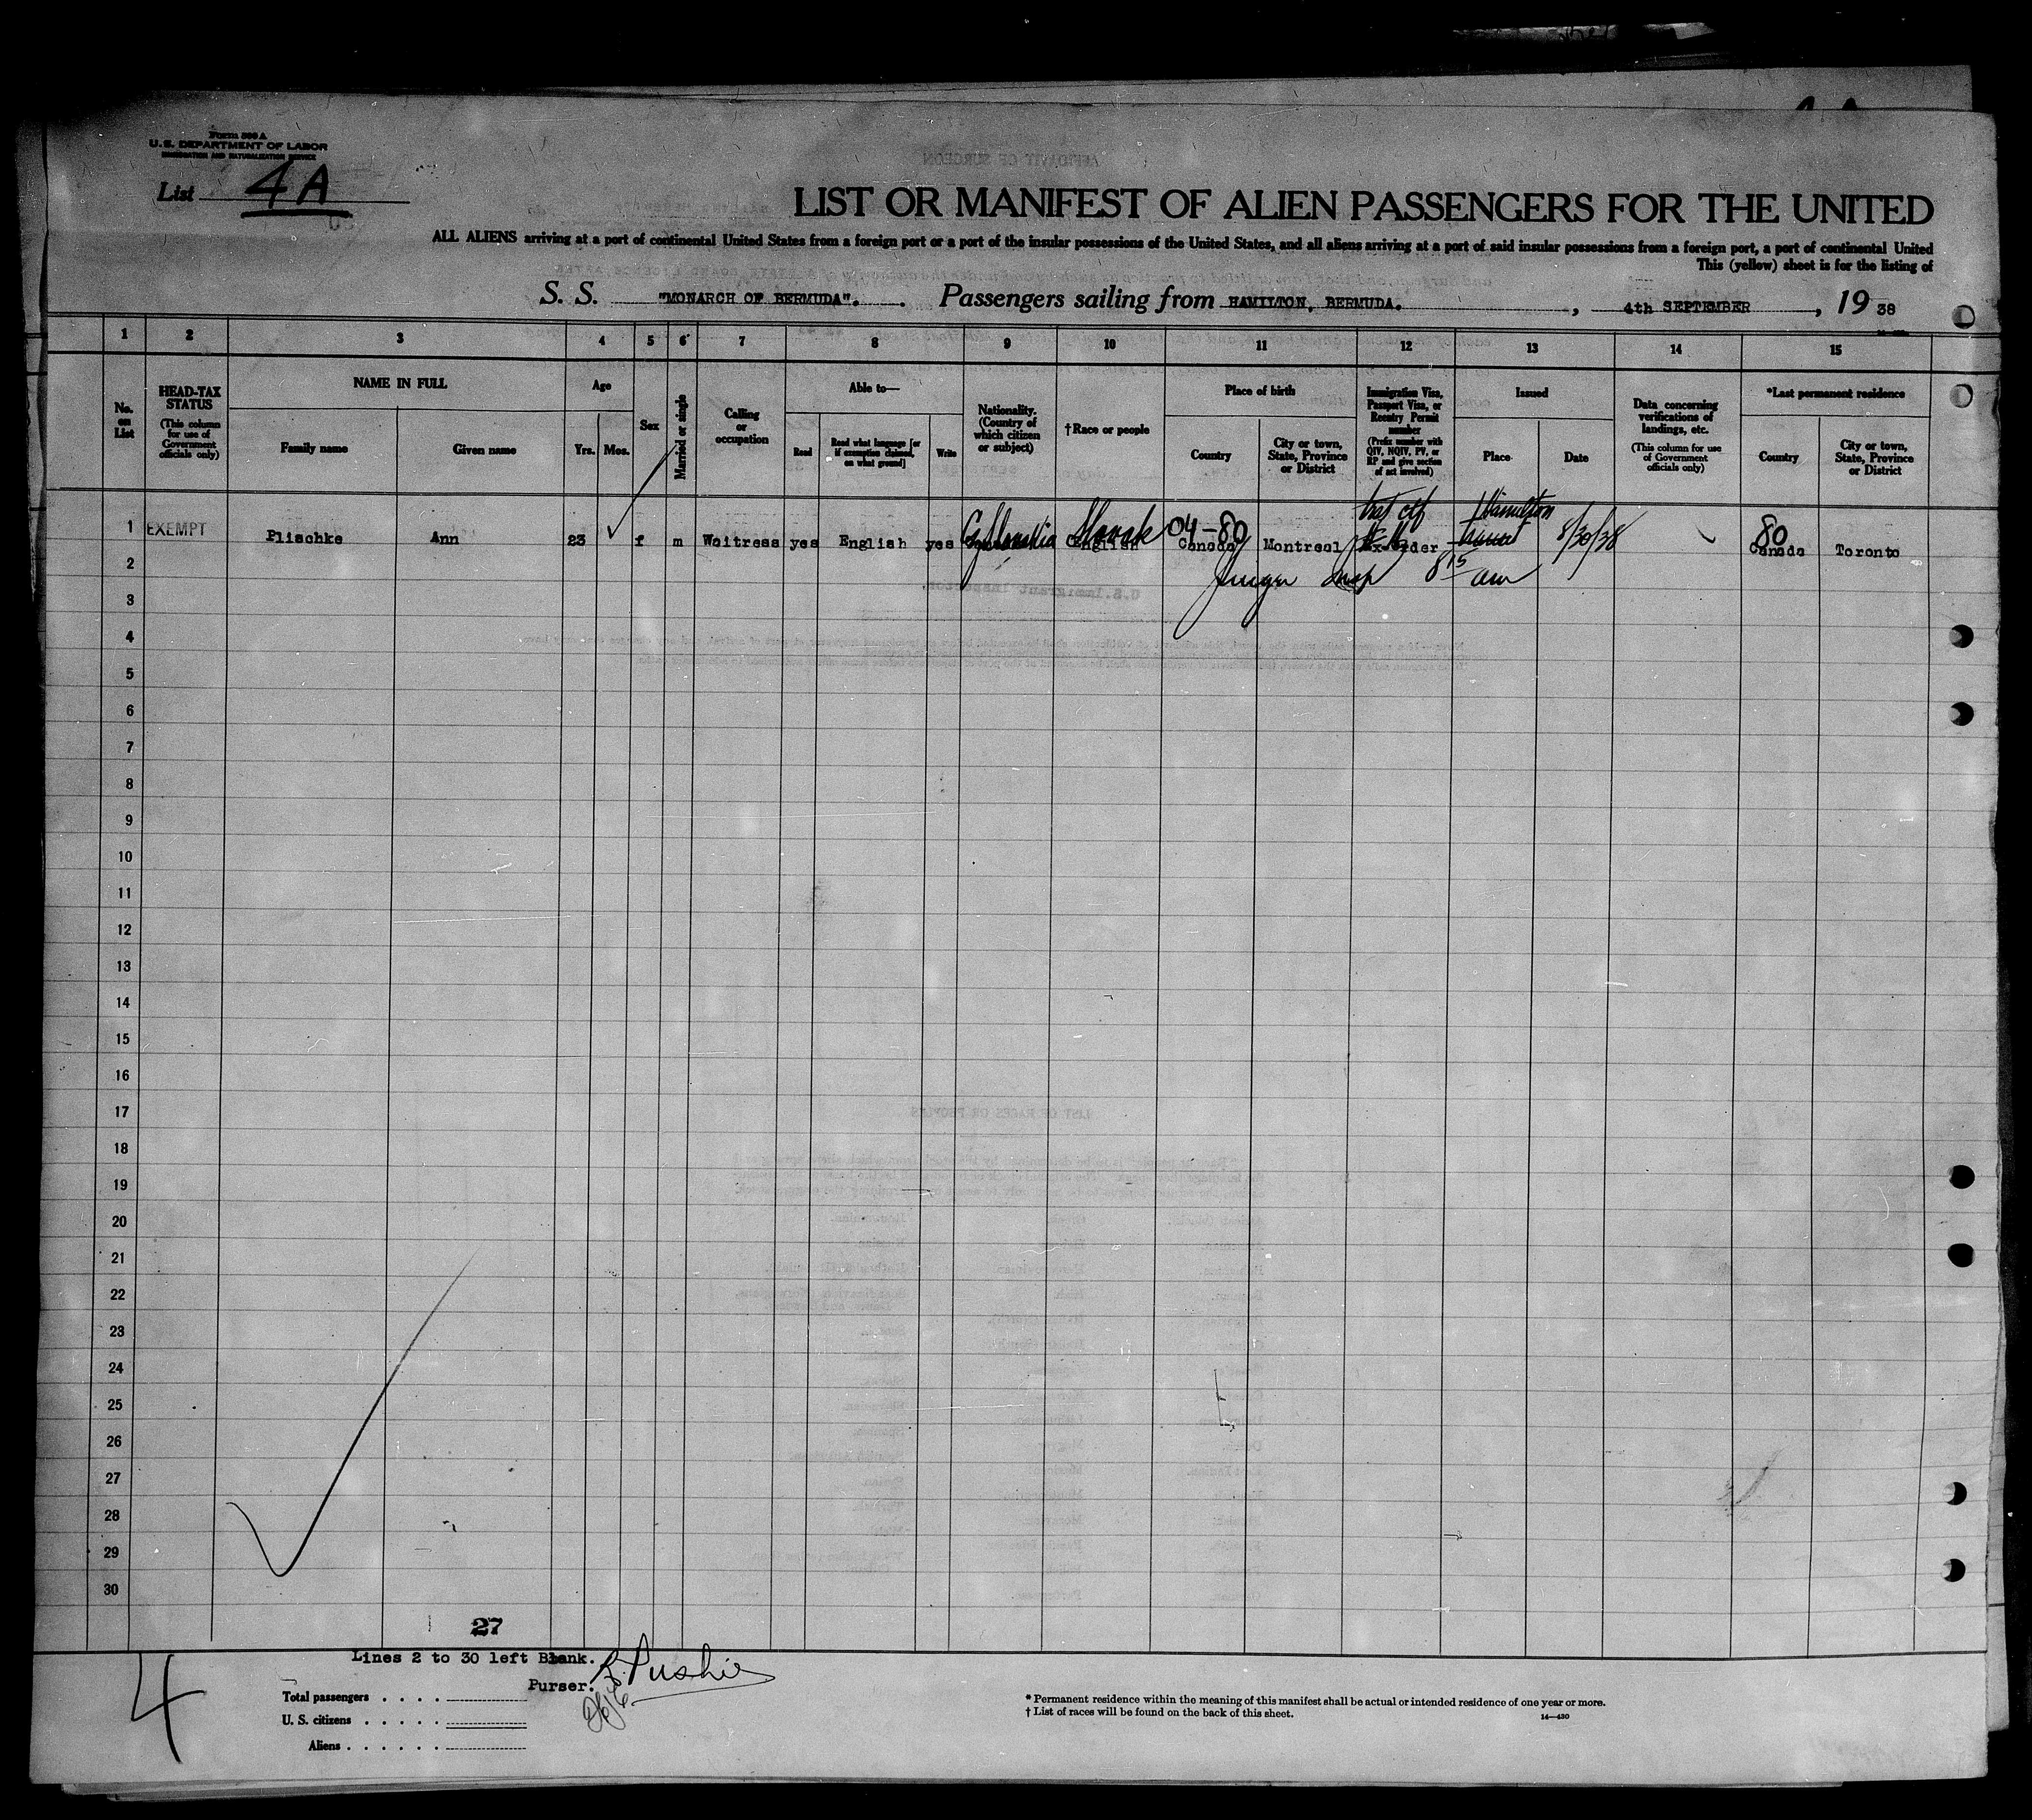 Form 500 A
U.S. DEPARTMENT OF LABOR
IMMIGRATION AND NATURALIZATION SERVICE
List 4A
LIST OR MANIFEST OF ALIEN PASSENGERS FOR THE UNITED
ALL ALIENS arriving at a port of continental United States from a foreign port or a port of the insular possessions of the United States, and all aliens arriving at a port of said insular possessions from a foreign port, a port of continental United
This (yellow) sheet is for the listing of
S. S. "MONARCH OF BERMUDA". Passengers sailing from HAMILTON, BERMUDA. , 4th SEPTEMBER , 19 38
1 2 3 4 5 6 7 8 9 10 11 12 13 14 15
No. on List
HEAD-TAX STATUS (This column for use of Government officials only)
NAME IN FULL
Family name Given name
Age
Yrs. Mos.
Sex
Married or single
Calling or occupation
Able to—
Read Read what language [or if exemption claimed, on what ground] Write
Nationality. (Country of which citizen or subject)
†Race or people
Place of birth
Country City or town, State, Province or District
Immigration Visa, Passport Visa, or Reentry Permit number (Prefix number with QIV, NQIV, PV, or RP and give section of act involved)
Issued
Place Date
Data concerning verifications of landings, etc. (This column for use of Government officials only)
*Last permanent residence
Country City or town, State, Province or District
1 EXEMPT Plischke Ann 23 f m Waitress yes English yes Slovak English 04-80 Canada Montreal Hamilton 8/30/38 80 Canada Toronto
2 8 15 am
3
4
5
6
7
8
9
10
11
12
13
14
15
16
17
18
19
20
21
22
23
24
25
26
27
28
29
30
27
Lines 2 to 30 left Blank.
Purser. R. Pushie
4
Total passengers . . . .
U. S. citizens . . . . .
Aliens . . . . . .
* Permanent residence within the meaning of this manifest shall be actual or intended residence of one year or more.
† List of races will be found on the back of this sheet.
14—430